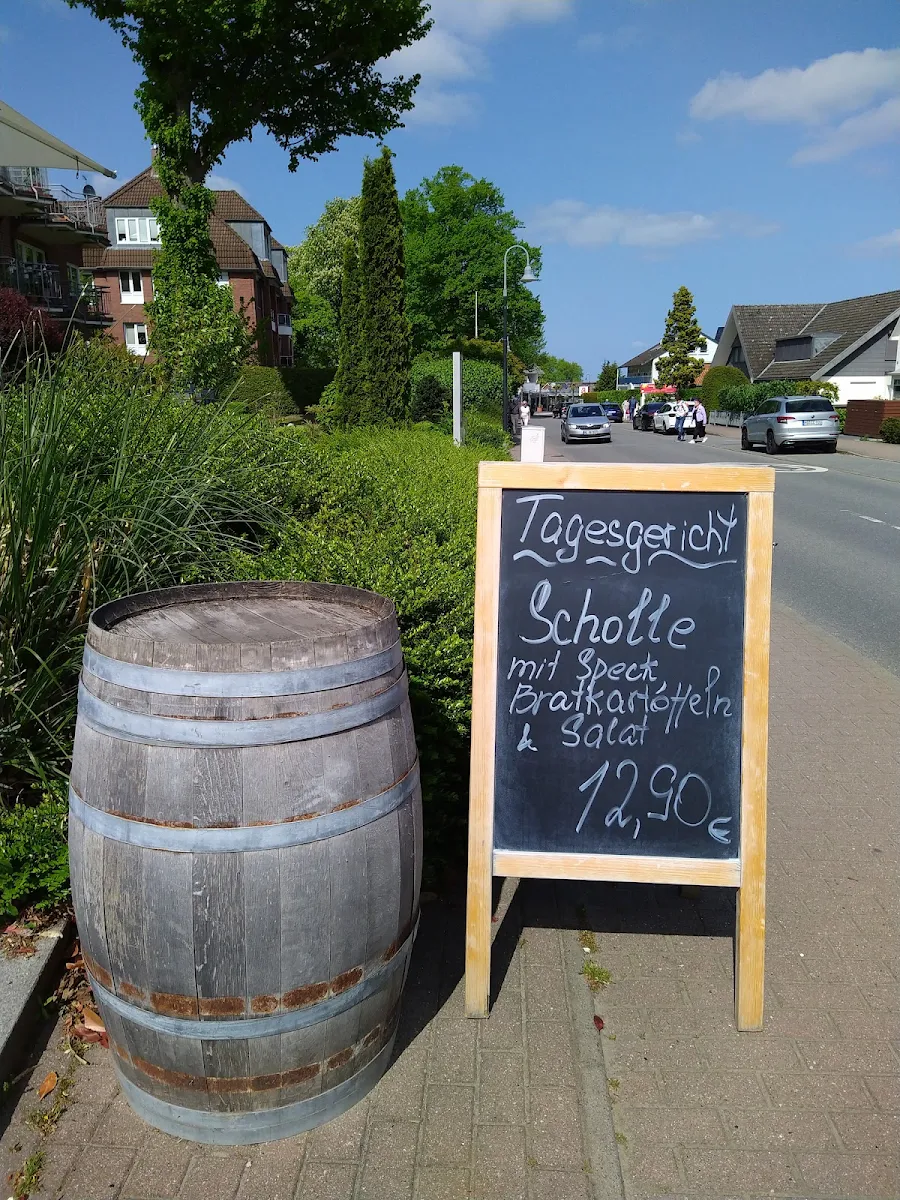 Tagesgericht
Scholle
mit Speck
Bratkartóffeln
& Salat
12,90
€